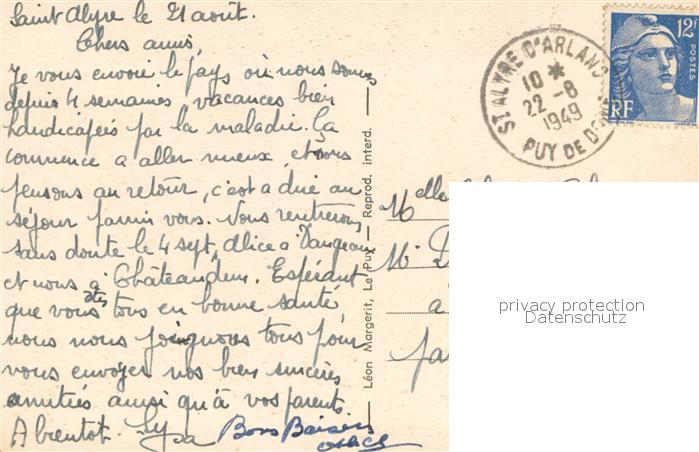 Saint Alyre le 21 août.
Chers amis,
Je vous envoie le pays où nous sommes
depuis 4 semaines, vacances bien
handicapées par la maladie. Ça
commence a aller mieux, et nous
pensons au retour, c'est a dire au
séjour parmi vous. Nous rentrerons
sans doute le 4 sept, Alice a Dangeau
et nous a Châteaudun. Espérant
que vous êtes tous en bonne santé,
nous nous joignons tous pour
vous envoyer nos bien sincères
amitiés ainsi qu'à vos parents.
A bientot.
Bons Baisers
Léon Margerit, Le Puy — Reprod. interd.
ST ALYRE D'ARLANC
10 *
22 - 8
1949
PUY DE DÔME
12F
POSTES
RF
Melle
M.
a
privacy protection
Datenschutz